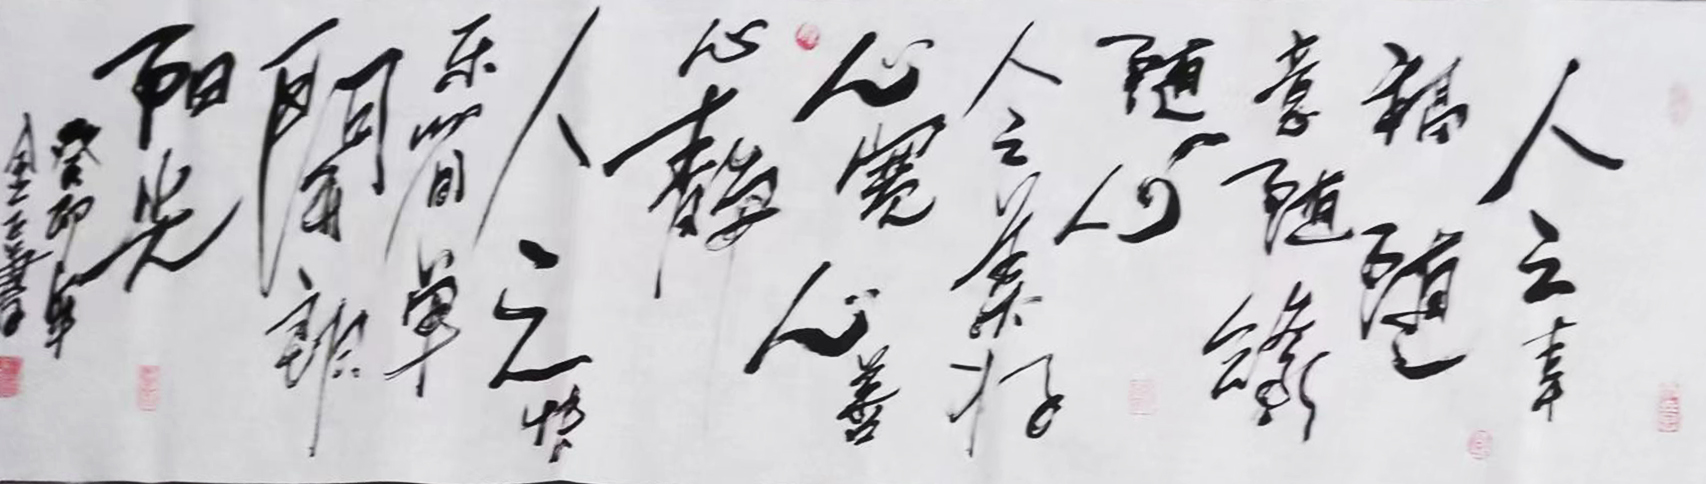 人之幸
福随
喜随缘
随心
人之美好
心宽心善
心静
人之快
乐简单
開朗
阳光
癸卯年